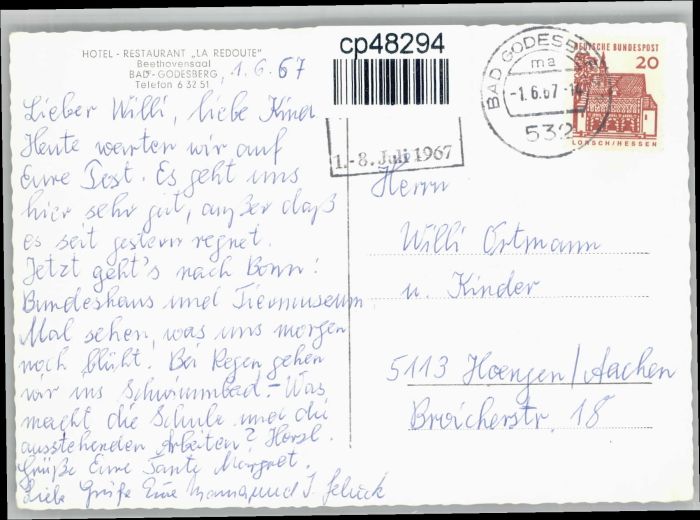 HOTEL - RESTAURANT „LA REDOUTE"
Beethovensaal
BAD-GODESBERG, 1.6.67
Telefon 6 32 51
Lieber Willi, liebe Kinder
Heute warten wir auf
Eure Post. Es geht uns
hier sehr gut, außer daß
es seit gestern regnet.
Jetzt geht's nach Bonn!
Bundeshaus und Tiermuseum
Mal sehen, was uns morgen
noch blüht. Bei Regen gehen
wir ins Schwimmbad. - Was
macht die Schule und die
ausstehenden Arbeiten? Herzl.
Grüße Eure Tante Margret.
Liebe Grüße Eure Mama und
cp48294
1.-8. Juli 1967
BAD GODESBERG
ma
-1.6.67.-1
532
DEUTSCHE BUNDESPOST
20
LORSCH/HESSEN
Herrn
Willi Ortmann
u. Kinder
5113 Hoengen/Aachen
Broicherstr. 18